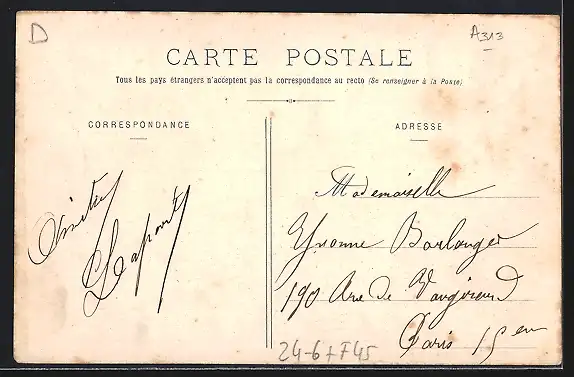 D
A313
CARTE POSTALE
Tous les pays étrangers n'acceptent pas la correspondance au recto (Se renseigner à la Poste)
CORRESPONDANCE
ADRESSE
Mademoiselle
Yvonne Boulanger
190 Rue de Vaugirard
Paris 15em
24-6 + F45